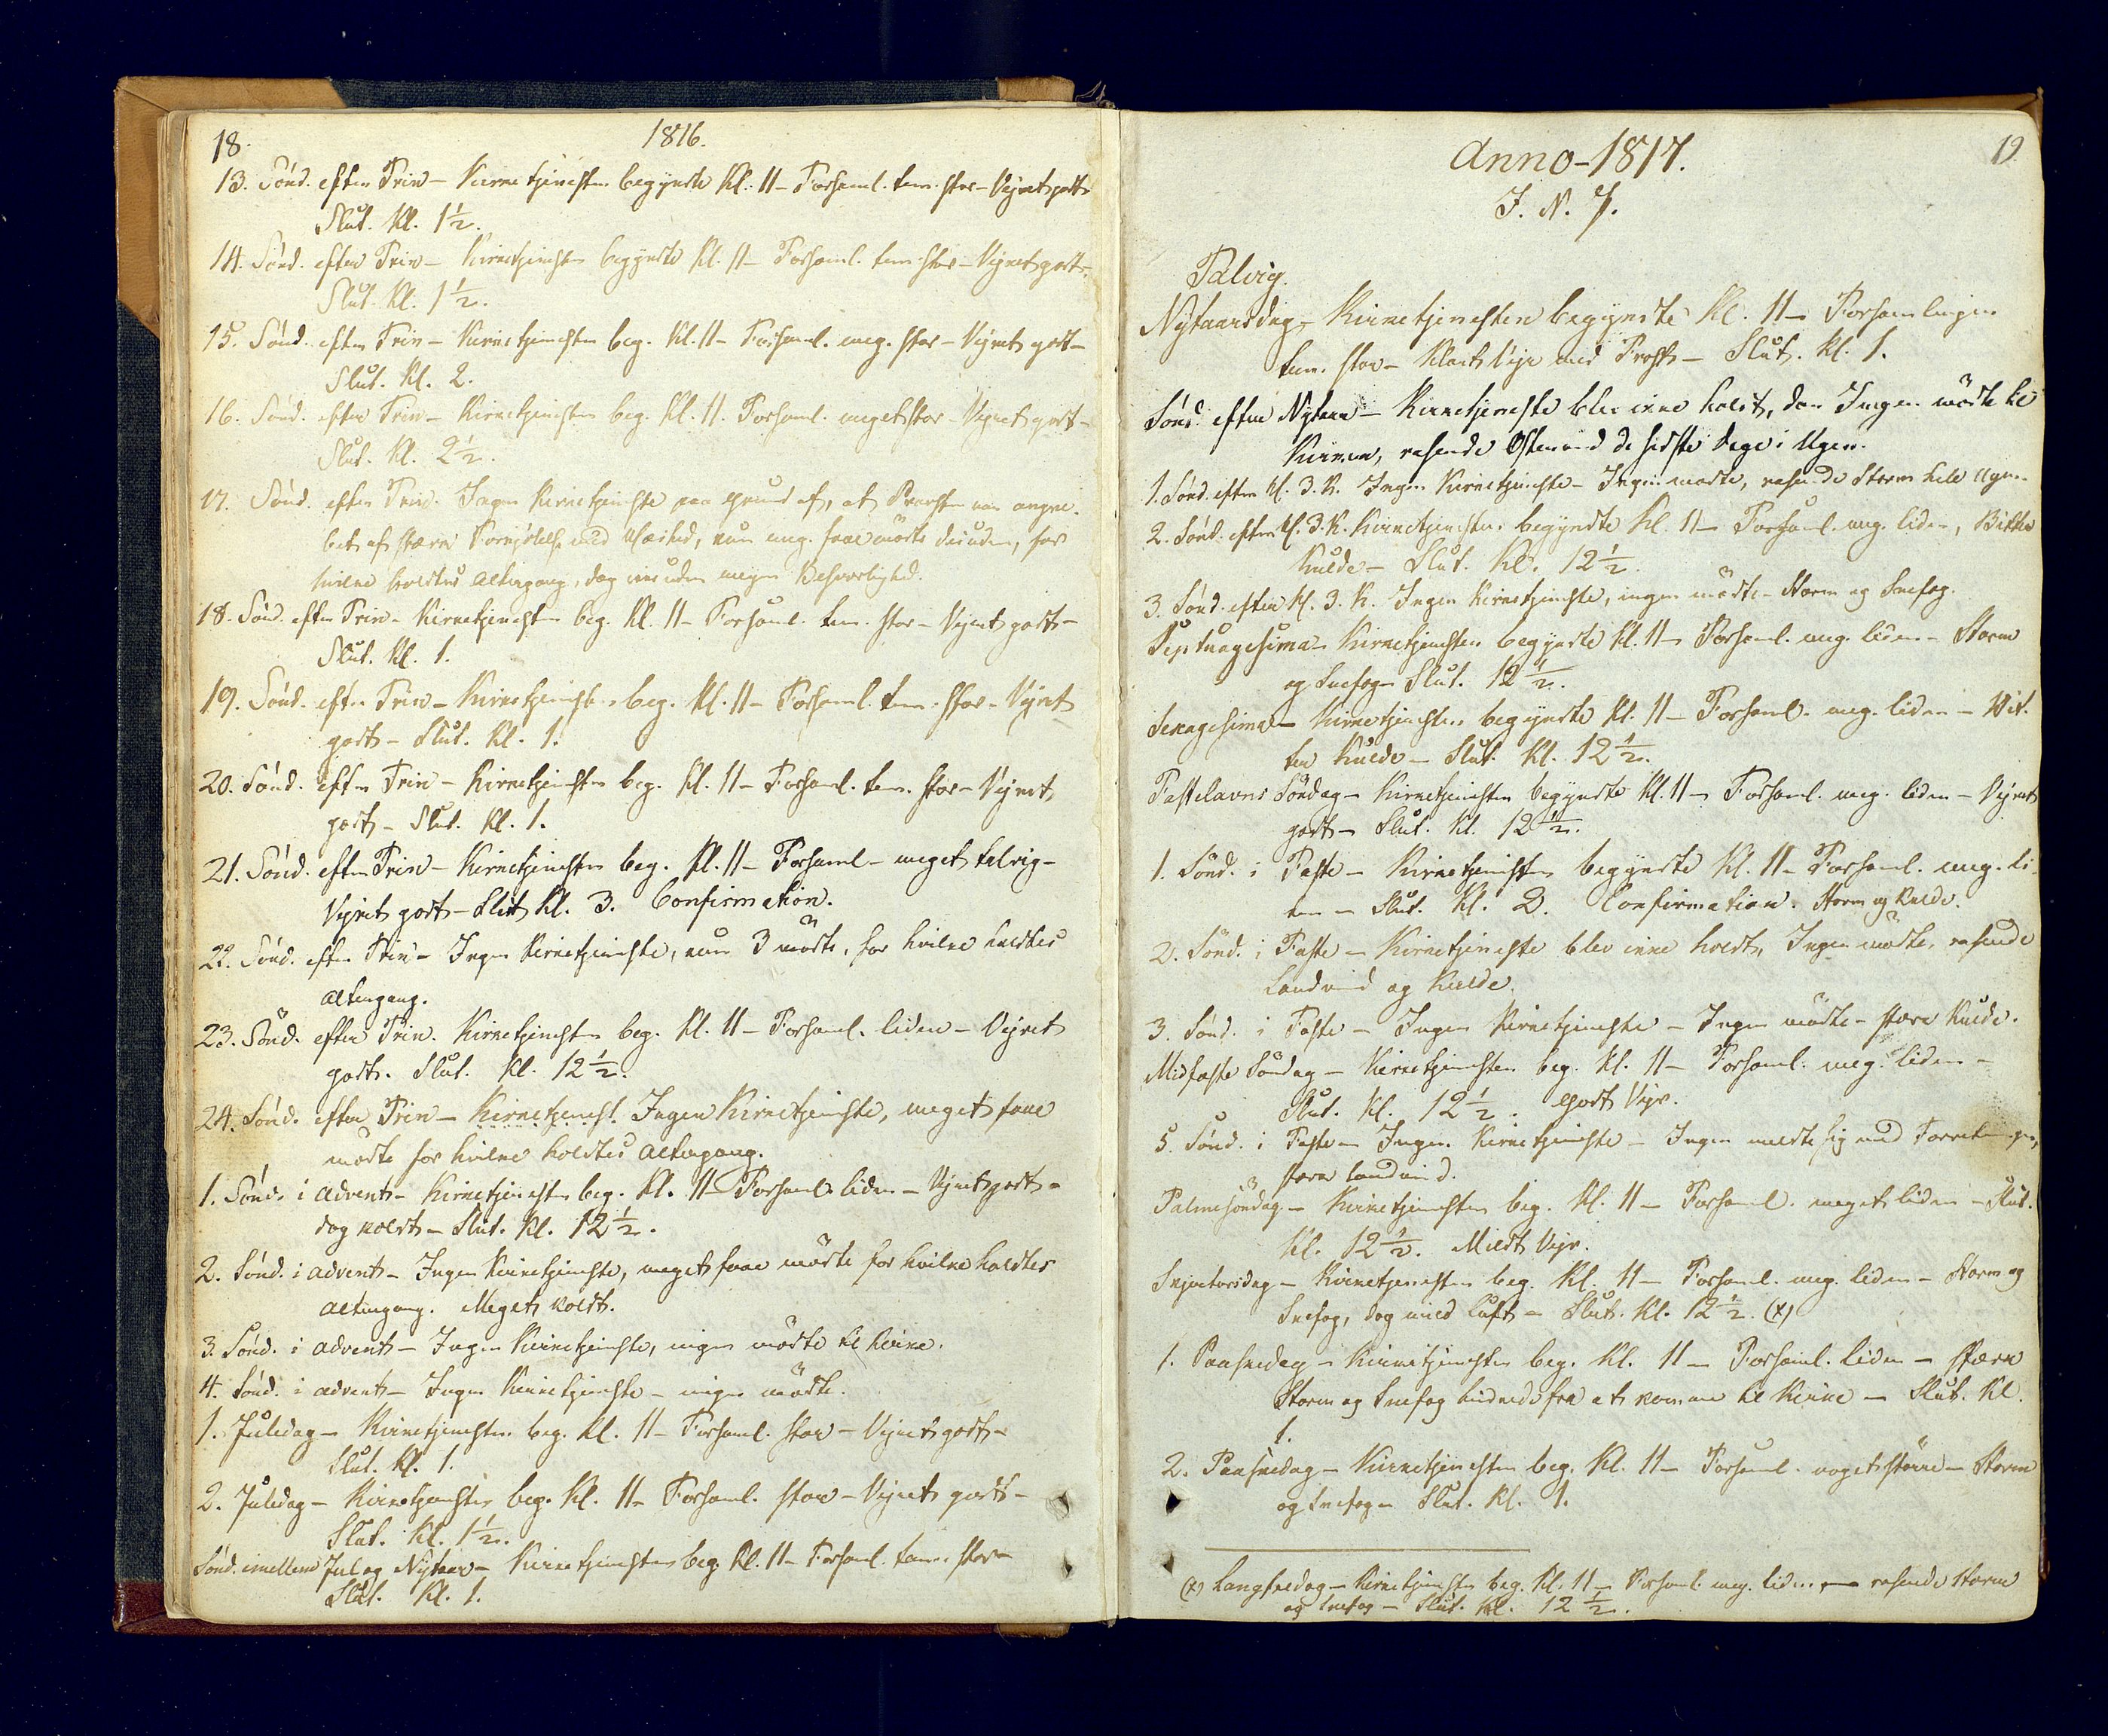 18.
1816.
13. Sönd. efter Trin – Kirketjenesten begyndte Kl. 11 – Forsaml. tem. stor – Vejret godt
Slut. Kl. 1½.
14. Sönd. efter Trin – Kirketjenesten begyndte Kl. 11 – Forsaml. tem. stor – Vejret godt –
Slut. Kl. 1½.
15. Sönd. efter Trin – Kirketjenesten beg. Kl. 11 – Forsaml. meg. stor – Vejret godt –
Slut. Kl. 2.
16. Sönd. efter Trin – Kirketjenesten beg. Kl. 11. Forsaml. meget stor – Vejret godt –
Slut. Kl. 2½.
17. Sönd. efter Trin. Ingen Kirketjeneste paa Grund af, at Præsten var angre-
bet af stærk Forkjölelse med Hæshed, kun meg. faae mödte desuden, for
hvilke holdtes Altergang, dog ikke uden megen Besværlighed.
18. Sönd. efter Trin – Kirketjenesten beg. Kl. 11 – Forsaml. tem. stor – Vejret godt –
Slut. Kl. 1.
19. Sönd. efter Trin – Kirketjenesten beg. Kl. 11 – Forsaml. tem. stor – Vejret
godt – Slut. Kl. 1.
20. Sönd. efter Trin – Kirketjenesten beg. Kl. 11 – Forsaml. tem. stor – Vejret
godt – Slut. Kl. 1.
21. Sönd. efter Trin – Kirketjenesten beg. Kl. 11 – Forsaml – meget talrig –
Vejret godt – Slut Kl. 3. Confirmation.
22. Sönd. efter Trin – Ingen Kirketjeneste, kun 3 mödte, for hvilke holdtes
Altergang.
23. Sönd. efter Trin. Kirketjenesten beg. Kl. 11 – Forsaml. liden – Vejret
godt. Slut. Kl. 12½.
24. Sönd. efter Trin – Kirketjenest. Ingen Kirketjeneste, meget faae
mödte for hvilke holdtes Altergang.
1. Sönd. i Advent – Kirketjenesten beg. Kl. 11 – Forsaml. liden – Vejret godt –
dog koldt – Slut. Kl. 12½.
2. Sönd. i Advent – Ingen Kirketjeneste, meget faae mödte for hvilke holdtes
Altergang. Meget koldt.
3. Sönd. i Advent – Ingen Kirketjeneste, ingen mödte til Kirke.
4. Sönd. i Advent – Ingen Kirketjeneste – ingen mödte.
1. Juledag – Kirketjenesten beg. Kl. 11 – Forsaml. stor – Vejret godt –
Slut. Kl. 1.
2. Juledag – Kirketjenesten beg. Kl. 11 – Forsaml. stor – Vejret godt –
Slut. Kl. 1½.
Sönd. imellem Jul og Nytaar – Kirketjenesten beg. Kl. 11 – Forsaml. tem. stor –
Slut. Kl. 1.
19
Anno – 1817.
I. N. J.
Talvig.
Nytaarsdag – Kirketjenesten begyndte Kl. 11 – Forsamlingen
tem. stor – Klart Vejr med Frost – Slut. Kl. 1.
Sönd. efter Nytaar – Kirketjeneste blev ikke holdt, da Ingen mödte til
Kirken, rasende Östenvind de sidste Dage i Ugen.
1. Sönd. efter H. 3. K. Ingen Kirketjeneste – Ingen mödte, rasende Storm hele Ugen.
2. Sönd. efter H. 3. K. Kirketjenesten begyndte Kl. 11 – Forsaml. meg. liden, Bitter
Kulde – Slut. Kl. 12½.
3. Sönd. efter H. 3. K. Ingen Kirketjeneste, ingen mödte – Storm og Snefog.
Septuagesima – Kirketjenesten begyndte Kl. 11 – Forsaml. meg. liden – Storm
og Snefog – Slut. 12½.
Sexagesima – Kirketjenesten begyndte Kl. 11 – Forsaml. meg. liden – Bit-
ter Kulde – Slut. Kl. 12½.
Fastelavns Söndag – Kirketjenesten begyndte Kl. 11 – Forsaml. meg. liden – Vejret
godt – Slut. Kl. 12½.
1. Sönd. i Faste – Kirketjenesten begyndte Kl. 11 – Forsaml. meg. li-
den – Slut. Kl. 2. Confirmation. Storm og Kulde.
2. Sönd. i Faste – Kirketjeneste blev ikke holdt, Ingen mödte, rasende
Landvind og Kulde.
3. Sönd. i Faste – Ingen Kirketjeneste – Ingen mödte – stærk Kulde.
Midfaste Söndag – Kirketjenesten beg. Kl. 11 – Forsaml. meg. liden –
Slut. Kl. 12½. Godt Vejr.
5. Sönd. i Faste – Ingen Kirketjeneste – Ingen meldte sig med Forretninger,
stærk Landvind.
Palmesöndag – Kirketjenesten beg. Kl. 11 – Forsaml. meget liden – Slut.
Kl. 12½. Mildt Vejr.
Skjertorsdag – Kirketjenesten beg. Kl. 11 – Forsaml. meg. liden – Storm og
Snefog, dog mild Luft – Slut. Kl. 12½. (x)
1. Paaskedag – Kirketjenesten beg. Kl. 11 – Forsaml. liden – stærk
Storm og Snefog hindrede fra at komme til Kirke – Slut. Kl.
1.
2. Paaskedag – Kirketjenesten beg. Kl. 11 – Forsaml. noget större – Storm
og Snefog – Slut. Kl. 1.
(x) Langfredag – Kirketjenesten beg. Kl. 11 – Forsaml. meg. liden – rasende Storm
og Snefog – Slut. Kl. 12½.